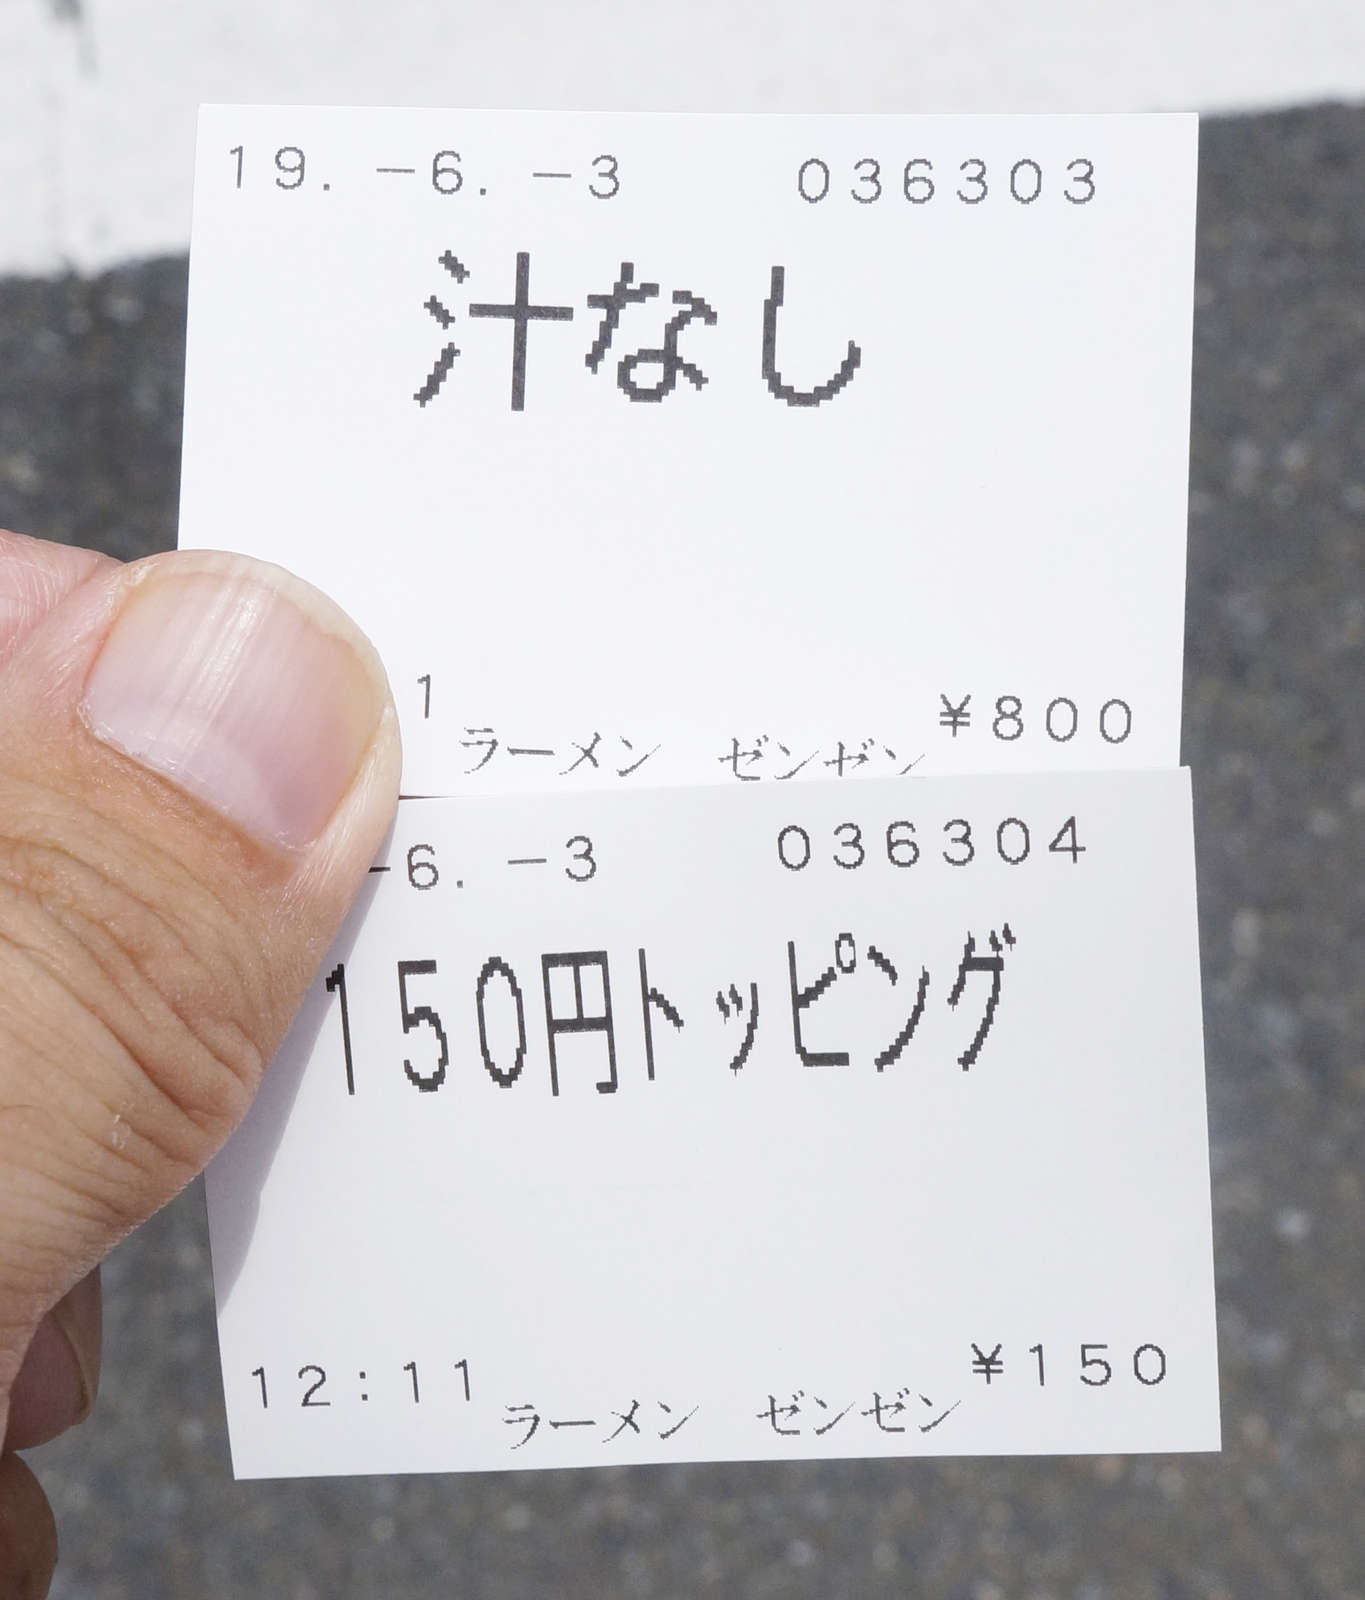 19. -6. -3 036303
汁なし
1 ¥800
ラーメン ゼンゼン
-6. -3 036304
150円トッピング
12:11 ¥150
ラーメン ゼンゼン